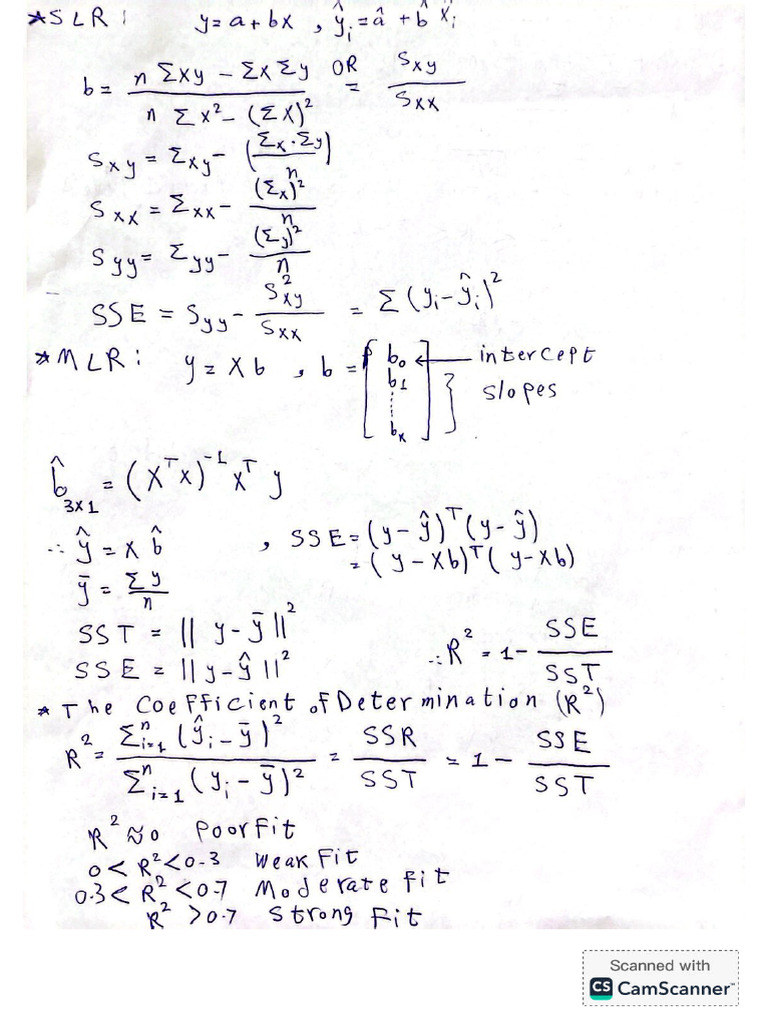 *SLR: y = a + bx , ŷᵢ = â + b̂ xᵢ
b = (n Σxy − Σx Σy) / (n Σx² − (Σx)²) OR = Sxy / Sxx
Sxy = Σxy − (Σx·Σy / n)
Sxx = Σxx − (Σx)² / n
Syy = Σyy − (Σy)² / n
SSE = Syy − S²xy / Sxx = Σ (yᵢ − ŷᵢ)²
*MLR: y = Xb , b = [b₀ b₁ ...... bₓ] ← intercept
} slopes
b̂ 3x1 = (XᵀX)⁻¹ Xᵀ y
∴ ŷ = X b̂ , SSE = (y − ŷ)ᵀ (y − ŷ)
= (y − Xb)ᵀ (y − Xb)
ȳ = Σy / n
SST = || y − ȳ ||²
SSE = || y − ŷ ||² ∴ R² = 1 − SSE / SST
* The Coefficient of Determination (R²)
R² = Σⁿᵢ₌₁ (ŷᵢ − ȳ)² / Σⁿᵢ₌₁ (yᵢ − ȳ)² = SSR / SST = 1 − SSE / SST
R² ≈ 0 Poor Fit
0 < R² < 0.3 Weak Fit
0.3 < R² < 0.7 Moderate fit
R² > 0.7 Strong Fit
Scanned with
CS CamScanner™